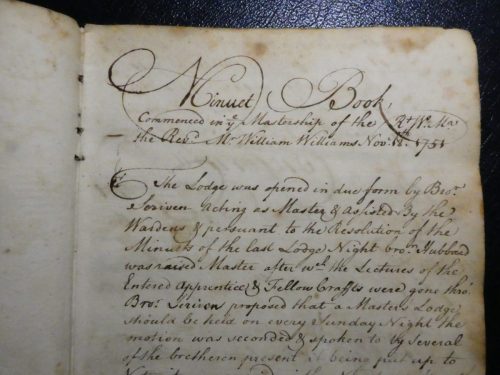 Minuet Book,
Commenced in ye Mastership of the Rt. W. Ma
the Revd. Mr. William Williams Novr. 11th. 1751
The Lodge was opened in due form by Bror.
Scriven Acting as Master & Asisted By the
Wardens & persuant to the Resolution of the
Minuets of the last Lodge Night bror. Hubbard
was raised Master after wch. the Lectures of the
Entered Apprentice & Fellow Crafts were gone thro
Bror. Scriven proposed that a Masters Lodge
should be held on every Sunday Night the
motion was seconded & spoken to by several
of the bretheren present it being put up to